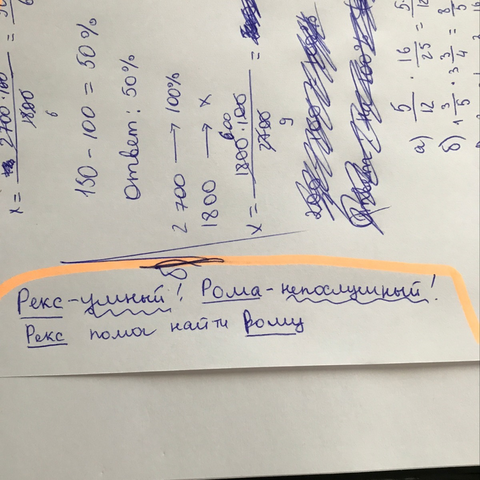 x = 2700·100 =
1800
6
150 - 100 = 50%
Ответ: 50%
2 700 → 100%
1800 → x
x = 1800·100 =
2700
600
9
а) 5/12 · 16/25 =
б) 1 3/5 · 3 3/4 = 8/5
Рекс - умный! Рома - непослушный!
Рекс помог найти Рому